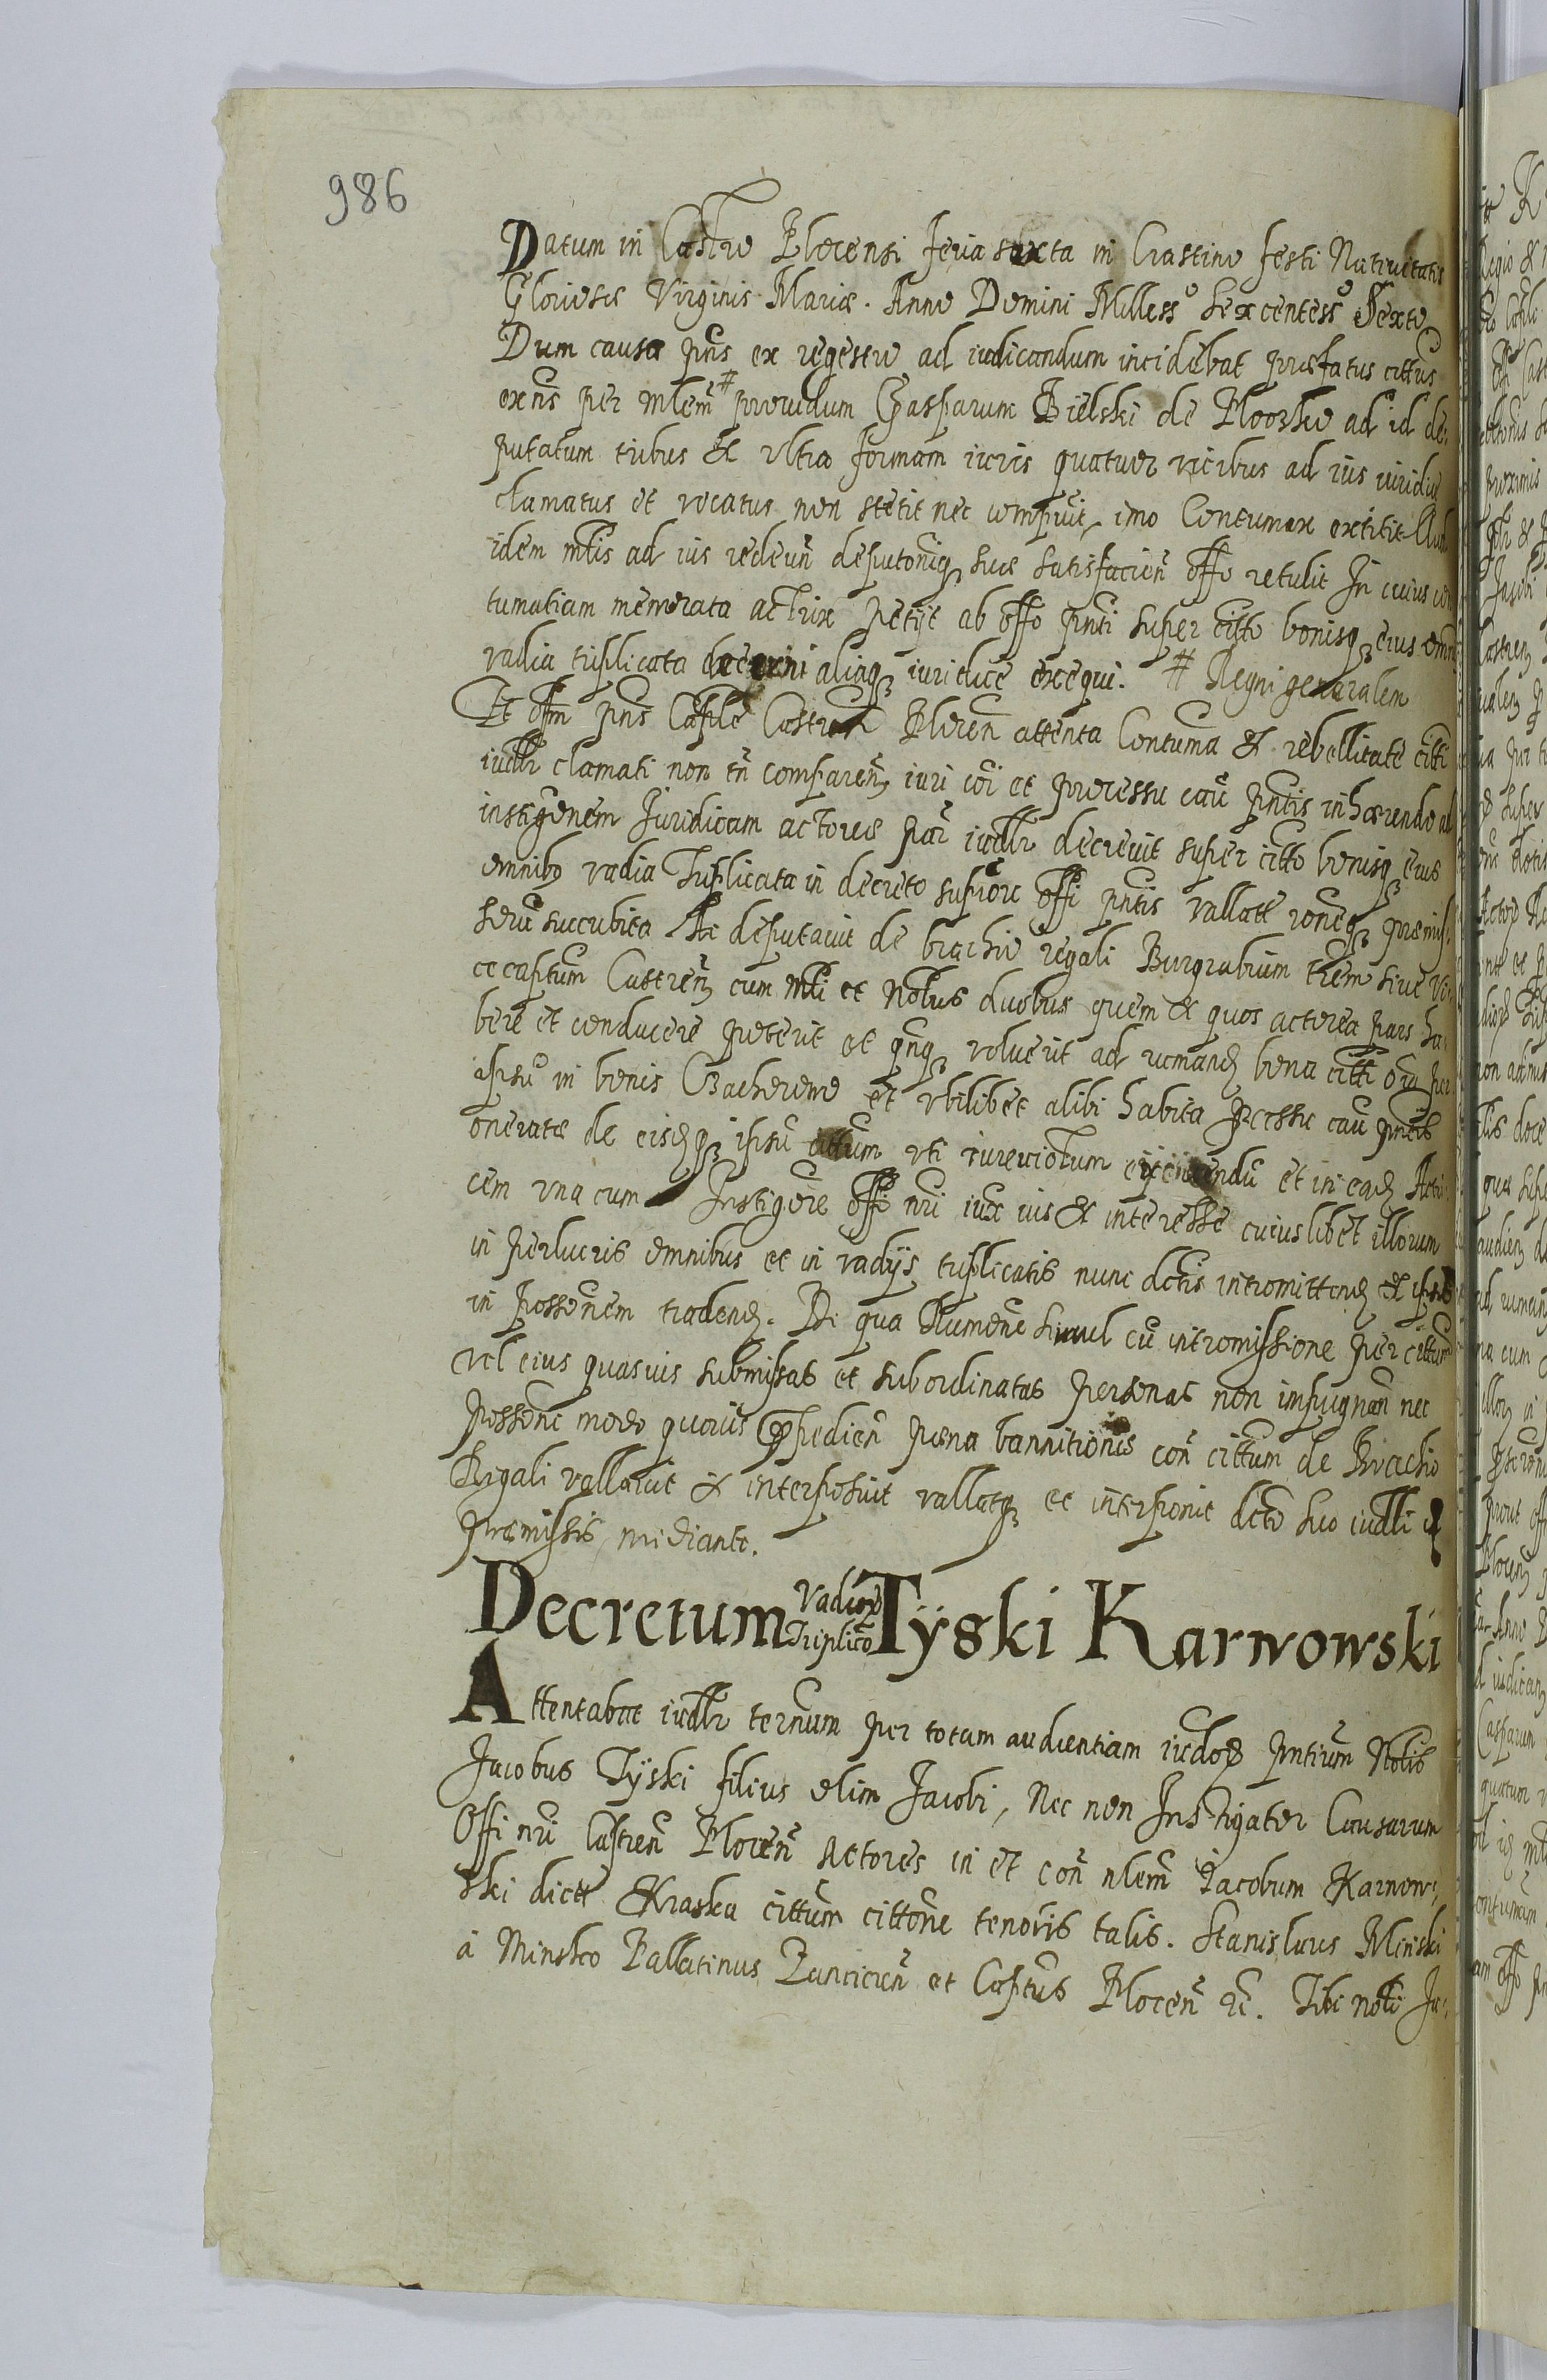 986
Datum in Castro Plocensi feria sexta in Crastino festi Nativitatis
Gloriosæ Virginis Mariæ. Anno Domini Milless° Sexcentess° Sexto
Dum causa pns ex regestro ad iudicandum incidebat præfatus cittus
exns per mlem # providum Gasparum Bielski de Plocsko ad id de-
putatum tribus et ultra formam iuris quatuor vicibus ad ius iuridice
clamatus et vocatus non stetit nec compuit, imo Contumax extitit
idem mtis ad ius redeun deputoniq suæ satisfacien offo retulit In cuius con
tumatiam memorata actrix petijt ab offo pnti super citto bonisq eius omni
vadia triplicata decerni aliaq iuridice exequi. # Regni generalem
Et offm pns Caplē Castren Plocen attenta Contuma et rebellitate citti
iudlr clamati non tn comparen iuri coi et processu cau pntis inhærendo ad
instigōnem Iuridicam actoreæ par iudlr decrevit super citto bonisq eius
omnibq vadia Triplicata in decreto supiore offi pntis vallatt roneq præmis-
soru succubita Ac deputavit de brachio regali Burgrabium trem sive Vi-
cecaptum Castren cum mti et Nobus duobus quem et quos actorea pars ha-
bere et conducere poterit et qnq voluerit ad rumand bona citti oia per
ipsu in bonis Bachorowo et ubilibet alibi habita Pcessu cau pntis
onerata de eisdq ipsu cittum uti iurevictum eijciendu et in ead Actri-
cem una cum Instigōre offi nri iux ius et interesse cuiuslibet illorum
in perlucris omnibus et in vadijs triplicatis nunc dctis intromittend et ipsis
in possōnem tradend. De qua Rumōne simul cu intromissione per cittum
vel eius quasvis submissas et subordinatas personas non impugnan nec
possōne modo quovis Impedien pæna bannitionis con cittum de Brachio
Regali vallavit et interposuit vallatq et interponit dcto suo iudlli in
præmissis mediante.
Decretum Vadior Triplico Tÿski Karnowski
Attentabat iudlr ternum per totam audientiam iudor pntium Nobilis
Jacobus Tÿski filius olim Jacobi, Nec non Instigator Causarum
Offi nri Castren Plocen Actores in et con nblem Jacobum Karnow-
ski dictt Kraska cittum cittone tenoris talis. Stanislaus Minski
à Minsko Pallatinus Lancicien et Captus Plocen etc. Tibi nobli Ja-